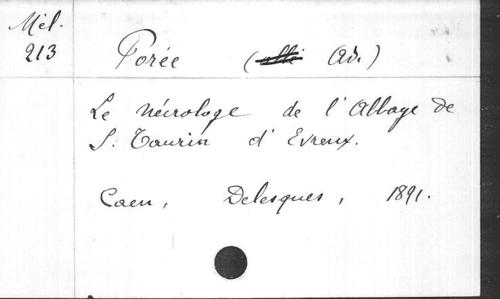 Mél.
213
Porée (Ad.)
Le nécrologe de l'Abbaye de
S. Taurin d'Evreux.
Caen, Delesques, 1891.